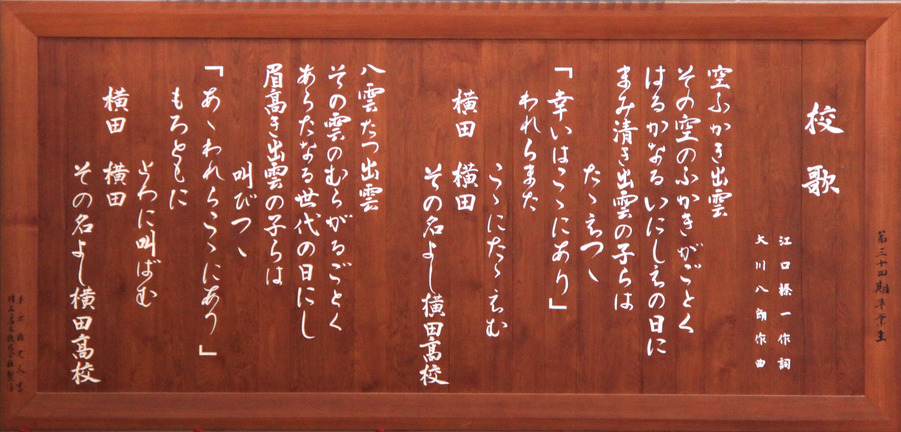 第三十四期卒業生
校歌
江口榛一作詞
大川八朗作曲
空ふかき出雲
その空のふかきがごとく
はるかなるいにしえの日に
まみ清き出雲の子らは
たゝえつゝ
「幸いはこゝにあり」
われらまた
こゝにたゝえむ
横田 横田
その名よし横田高校
八雲たつ出雲
その雲のむらがるごとく
あらたなる世代の日にし
眉高き出雲の子らは
叫びつゝ
「あゝわれらこゝにあり」
もろともに
よわに叫ばむ
横田 横田
その名よし横田高校